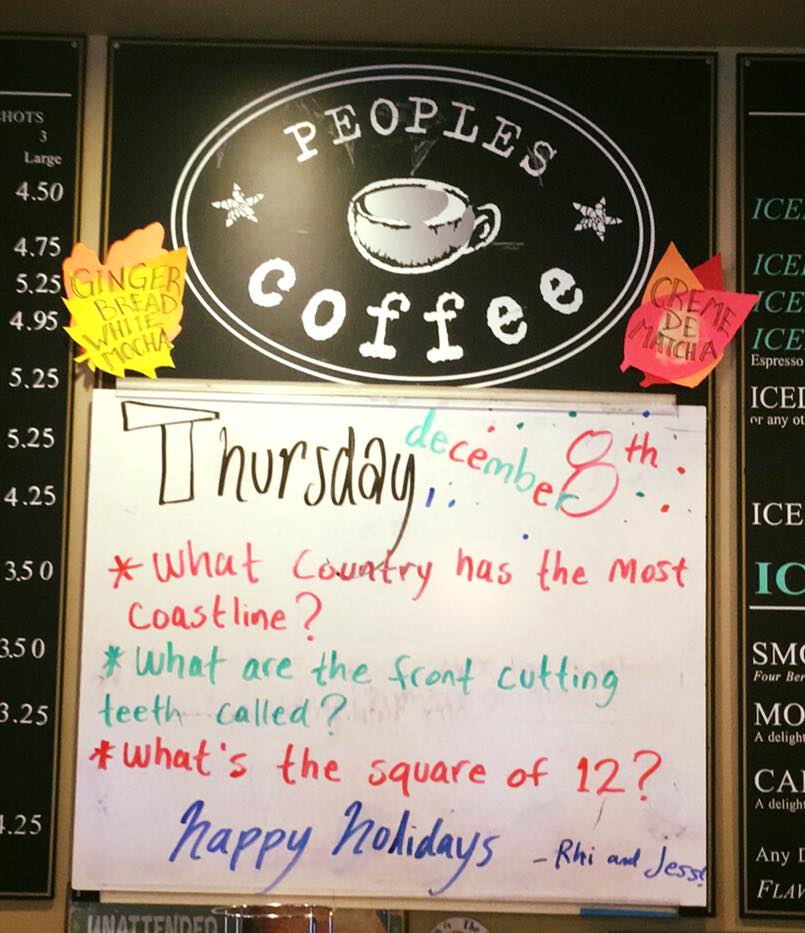 PEOPLES
coffee
GINGER
BREAD
WHITE
MOCHA
CREME
DE
MATCHA
Thursday, december 8th
* What Country has the most
coastline?
* What are the front cutting
teeth called?
* What's the square of 12?
happy holidays - Rhi and Jess!
3
Large
4.50
4.75
5.25
4.95
5.25
5.25
4.25
3.50
3.50
3.25
ICED
or any
ICE
IC
Espresso
Any
UNATTENDED